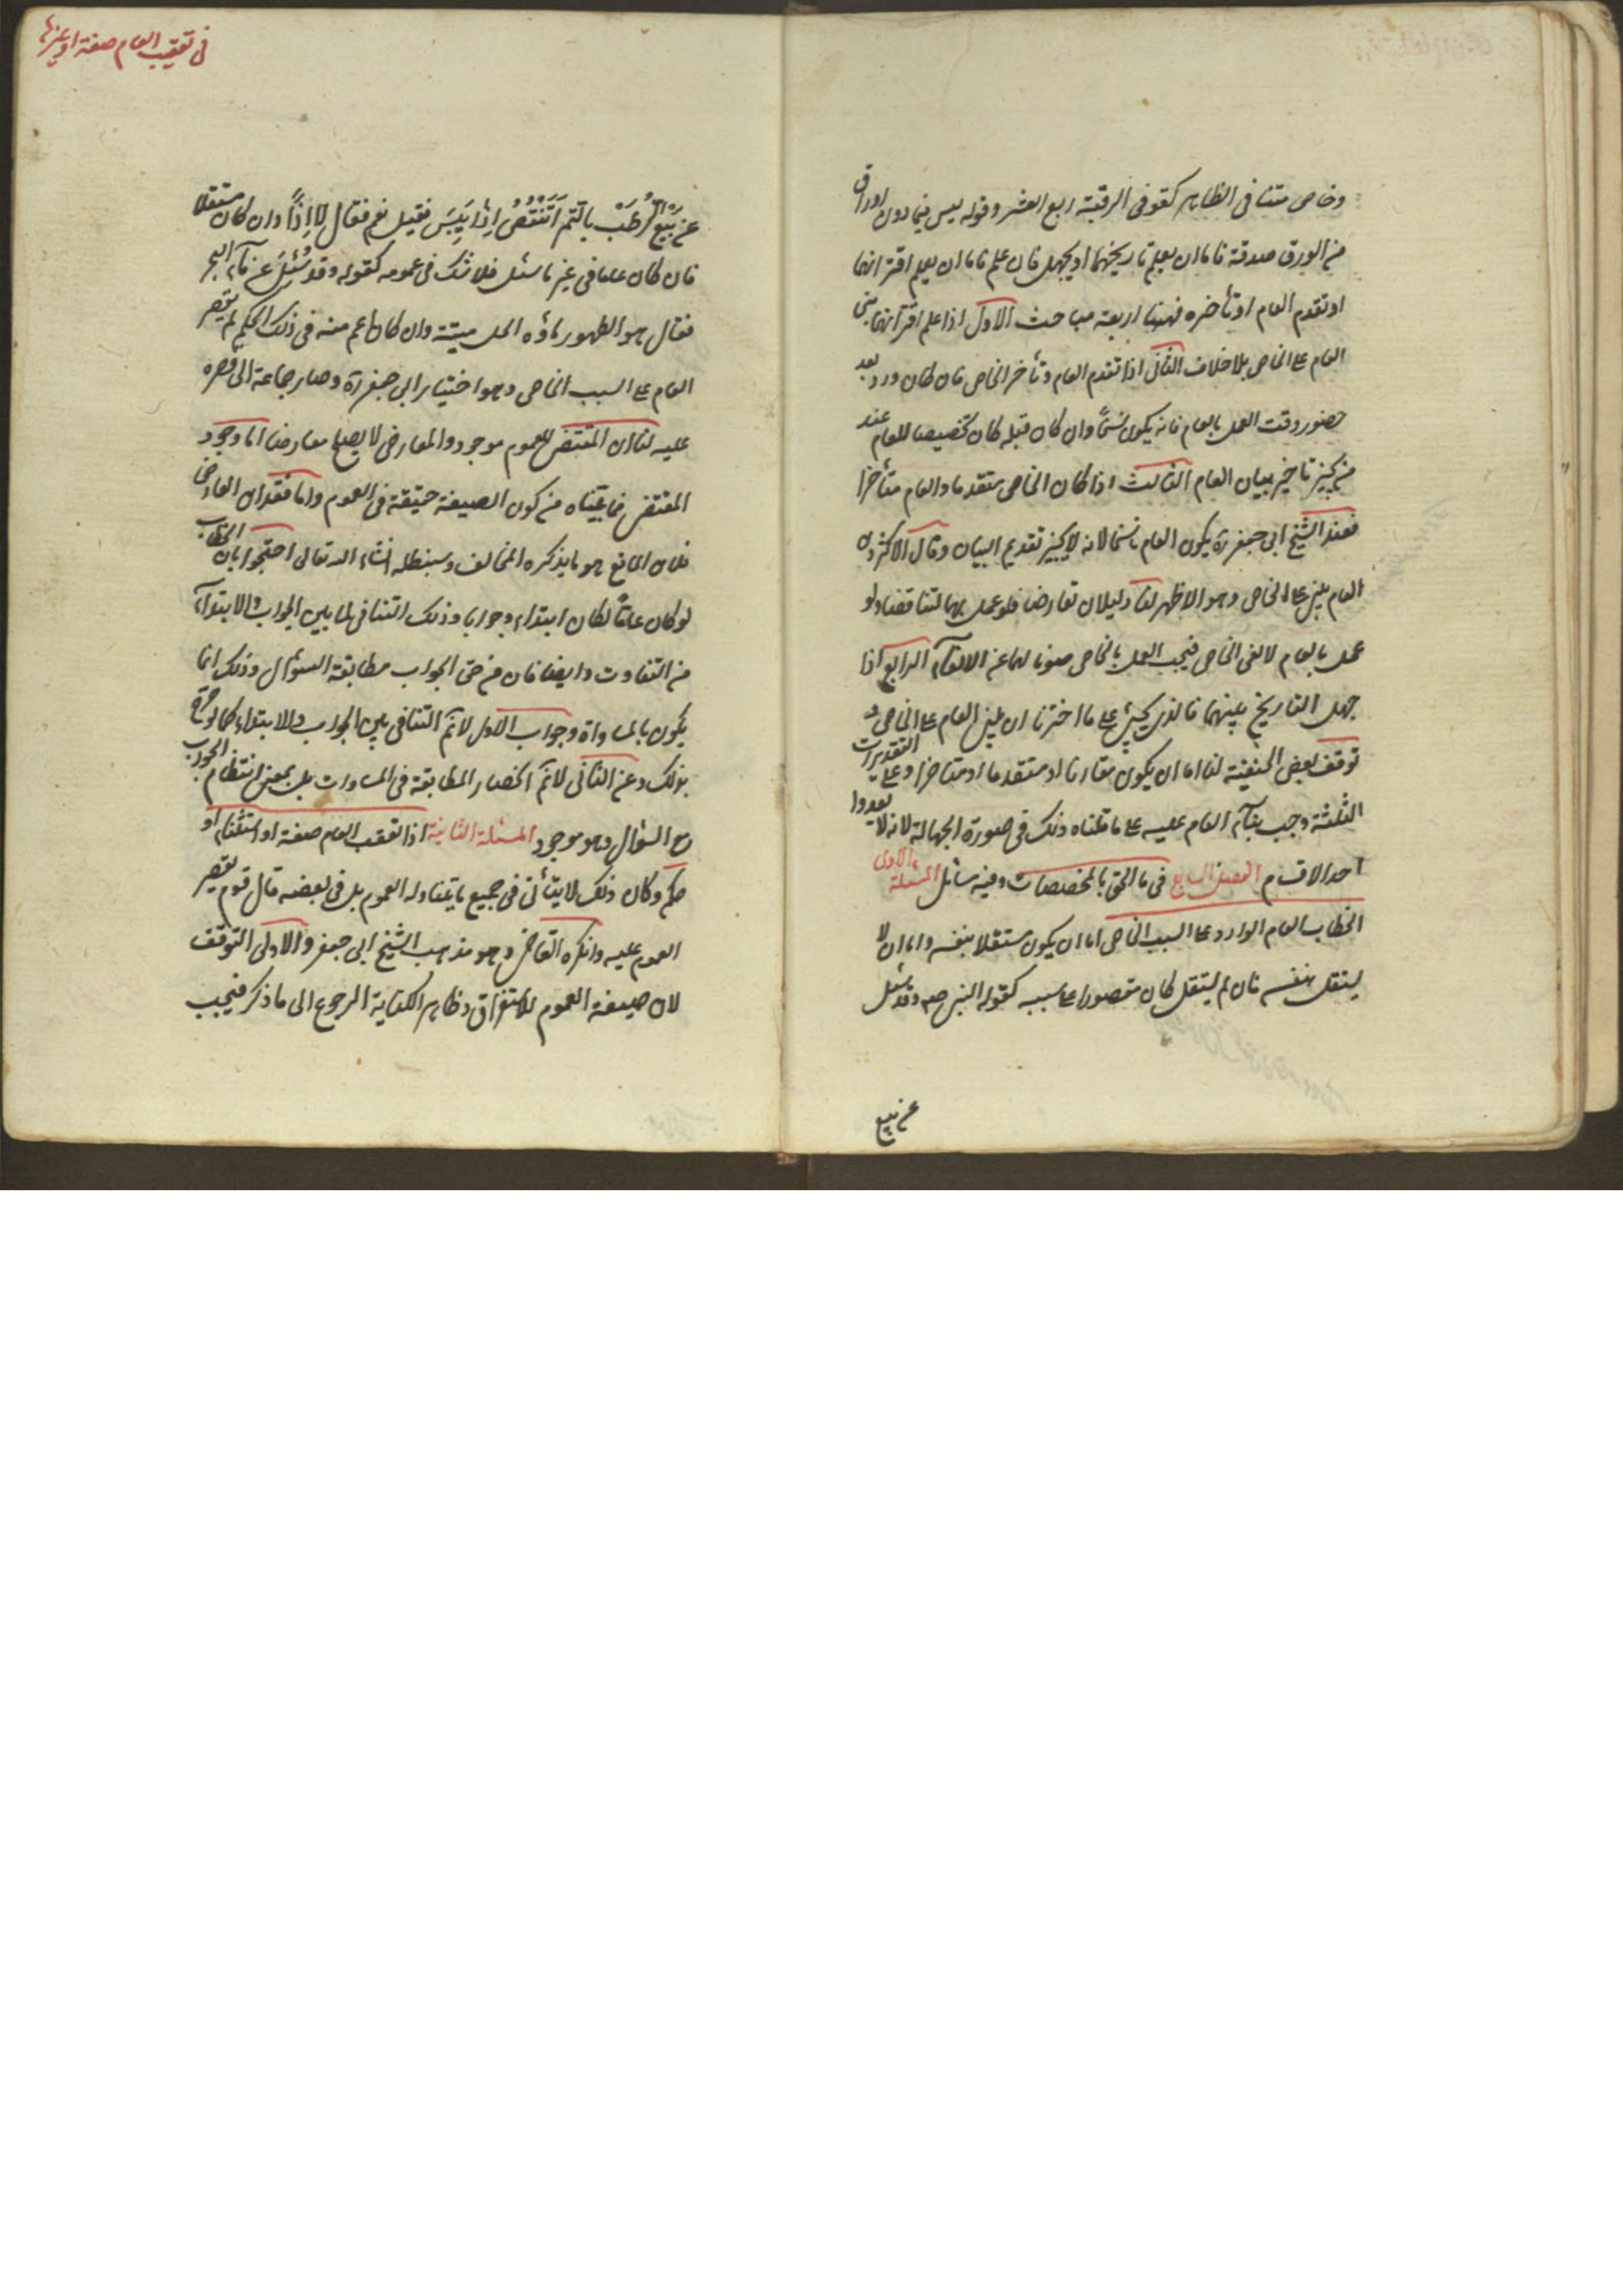 وخاص متنافى الظاهر كقوله فى الرقبة ربع العشر وقوله ليس فيما دون اوراق
من الورق صدقة فاما ان يعلم تاريخهما او يجهل فان علم فاما ان يعلم اقترانهما
او تقدم العام او تأخره فهنا اربعة مباحث الاول اذا علم اقترانهما بنى
العام على الخاص بلا خلاف الثانى اذا تقدم العام وتأخر الخاص فان كان ورد بعد
حضور وقت العمل بالعام فانه يكون نسخاً وان كان قبله كان تخصيصا للعام عند
من يجيز تاخير بيان العام الثالث اذا كان الخاص متقدما والعام متأخرا
فعند الشيخ ابى جعفر ره يكون العام ناسخا لانه لا يجيز تقديم البيان وقال الاكثرون
العام يبنى على الخاص وهو الاظهر لنا دليلان تعارضا فلو عمل بهما لتناقضا ولو
عمل بالعام لالغى الخاص فيجب العمل بالخاص صونا لهما عن الالغآء الرابع اذا
جهل التاريخ بينهما فالذى يجئ على ما اخترنا ان يبنى العام على الخاص و
توقف بعض الحنفية لنا اما ان يكون مقارنا او متقدما او متاخرا وعلى التقديرات
الثلثة وجب بنآء العام عليه على ما قلناه وذلك فى صورة الجهالة لانه لا يعدوا
احد الاقسام الفصل السابع فى ما الحق بالمخصصات وفيه مسائل المسئلة الاولى
الخطاب العام الوارد على السبب الخاص اما ان يكون مستقلا بنفسه واما ان لا
يستقل بنفسه فان لم يستقل كان مقصورا على سببه كقوله النبى صم وقد سئل
عن بيع
فى تعقيب العام صفة او غيرها
عن بَيْعِ الرُّطَبِ بالتمر اَتَنْقُصُ اِذَا يَبِسَ فقيل نعم فقال لا اِذًا وان كان مستقلا
فان كان عاما فى غير ما سئل فلا شك فى عمومه كقوله وقد سُئِلَ عن مآء البحر
فقال هو الطهور ماؤه الحل ميتته وان كان اعم منه فى ذلك الحكم لم يقصر
العام على السبب الخاص وهو اختيار ابى جعفر ره وصار جماعة الى قصره
عليه لنا ان المقتضى للعموم موجود والمعارض لا يصلح معارضا اما وجود
المقتضى فما بيّناه من كون الصيغة حقيقة فى العموم واما فقدان المعارض
فلان المانع هو ما يذكره المخالف وسنبطله انشاء الله تعالى احتجوا بان الخطاب
لو كان عامّاً لكان ابتداء وجوابا وذلك التنافى لما بين الجواب والابتدآء
من التفاوت وايضا فان من حق الجواب مطابقة السؤال وذلك انما
يكون بالمساواة وجواب الاول لا نَمَّ التنافى بين الجواب والابتداء كما لو صرح
بذلك وعن الثانى لا نَمَّ انحصار المطابقة فى المساوات بل بمعنى انتظام الجواب
مع السؤال وهو موجود المسئلة الثانية اذا تعقب العام صفة او استثناء او
حكم وكان ذلك لا يتأتى فى جميع ما يتناوله العموم بل فى بعضه قال قوم يقصر
العموم عليه وانكره القاضى وهو مذهب الشيخ ابى جعفر والاولى التوقف
لان صيغة العموم للاستغراق وظاهر الكناية الرجوع الى ما ذكر فيجب